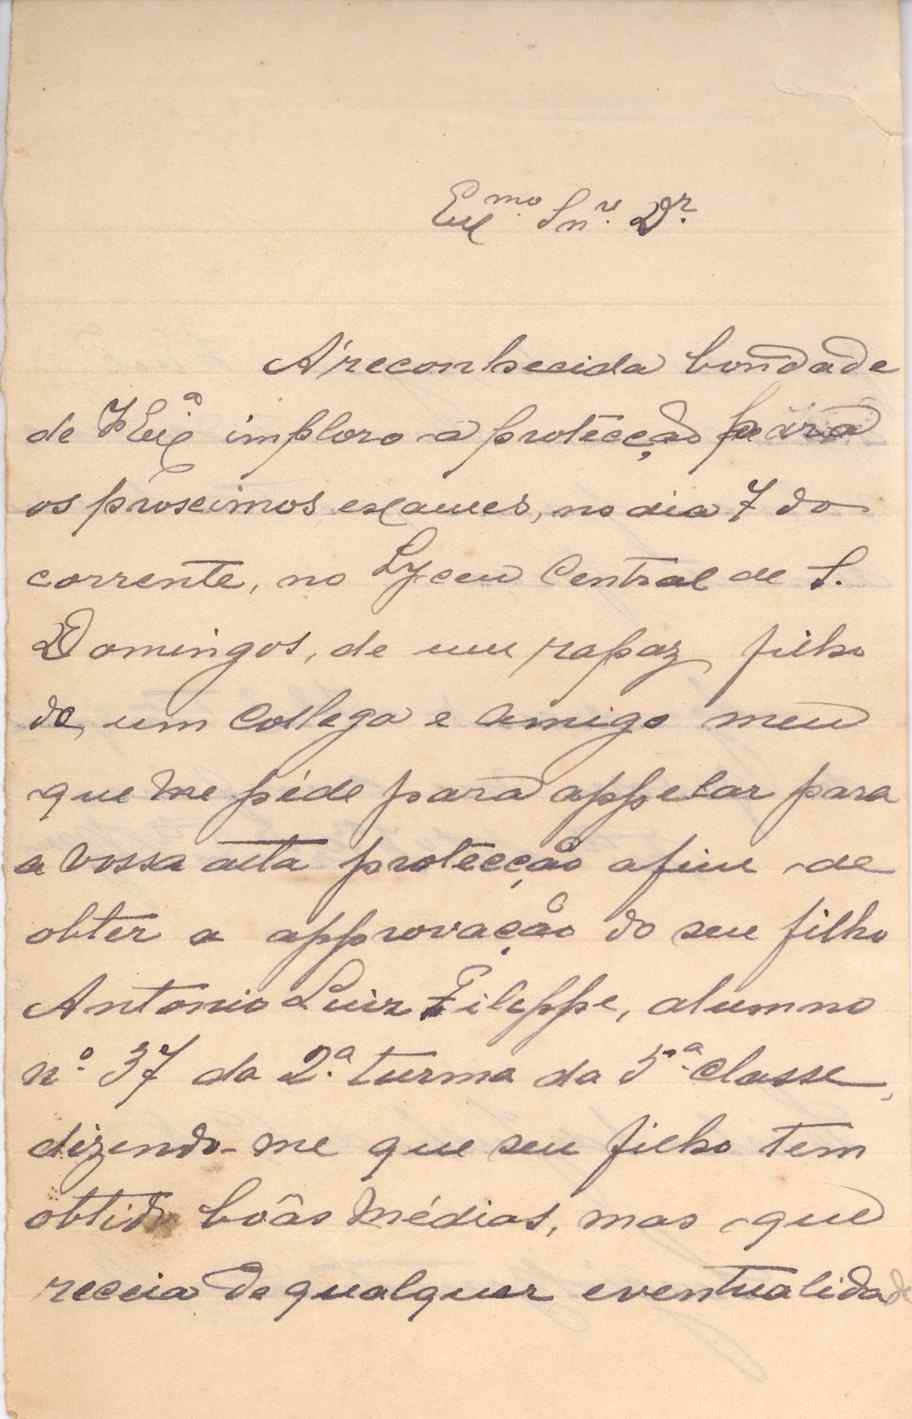 Ex.mo Snr. Dr.
A' reconhecida bondade
de V Exa imploro a protecção para
os proximos exames, no dia 7 do
corrente, no Lyceu Central de S.
Domingos, de um rapaz, filho
de um collega e amigo meu
que me péde para appelar para
a vossa alta protecção afim de
obter a approvação do seu filho
Antonio Luiz Filippe, alumno
n.º 37 da 2.ª turma da 5.ª classe,
dizendo-me que seu filho tem
obtido boâs médias, mas que
receia de qualquer eventualidade